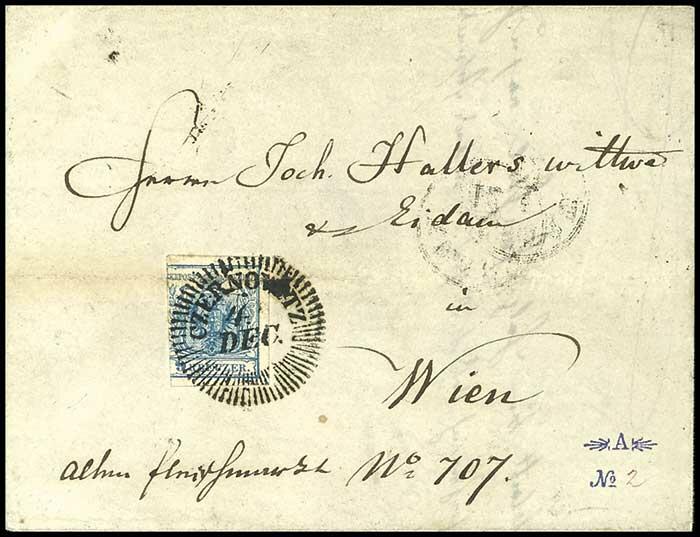 Herrn Joch. Hallers wittwe
& Eidam
CZERNOWITZ
4
DEC.
KREUZER.
in
Wien
alten fleischmarkt No 707.
A
No 2